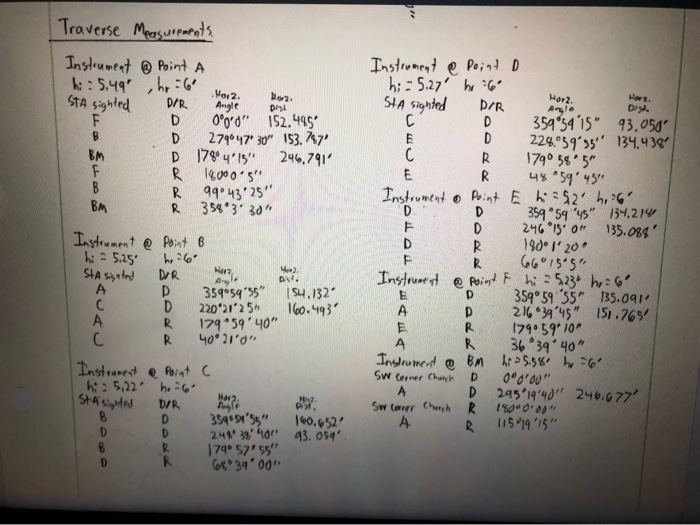 Traverse Measurements
Instrument @ Point A
hi = 5.49' , hr = 6'
STA sighted D/R Horz. Angle Horz. Dist.
F D 0°0'0" 152.445'
B D 279°47'30" 153.747'
BM D 178°4'15" 246.791'
F R 180°0'5"
B R 99°43'25"
BM R 358°3'30"
Instrument @ Point B
hi = 5.25' hr = 6'
STA Sighted D/R Horz. Angle Horz. Dist.
A D 359°59'55" 154.132'
C D 220°21'25" 160.493'
A R 179°59'40"
C R 40°21'0"
Instrument @ Point C
hi = 5.22' hr = 6'
STA Sighted D/R Horz. Angle Horz. Dist.
B D 359°59'55" 160.652'
D D 248°38'40" 93.059'
B R 179°57'55"
D R 68°39'00"
Instrument @ Point D
hi = 5.27' hr = 6'
StA sighted D/R Horz. Angle Horz. Dist.
C D 359°59'15" 93.050'
E D 228°59'55" 134.438'
C R 179°58'5"
E R 48°59'45"
Instrument @ Point E hi = 5.2' hr = 6'
D D 359°59'45" 134.218'
F D 246°15'0" 135.088'
D R 180°1'20"
F R 66°15'5"
Instrument @ Point F hi = 5.23' hr = 6'
E D 359°59'55" 135.091'
A D 216°39'45" 151.765'
E R 179°59'10"
A R 36°39'40"
Instrument @ BM hi = 5.58' hr = 6'
SW Corner Church D 0°0'00"
A D 295°19'40" 246.677'
SW Corner Church R 180°0'00"
A R 115°19'15"